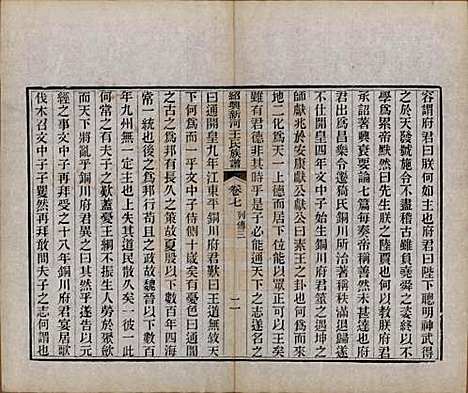 容謂府君曰朕何如主府君曰陛下聰明神武得
之於天發號施令不盡稽古雖負堯舜之姿終以不
學爲累帝默然有間曰先生朕之陸賈也何以教朕府君
承詔著興衰要論七篇每奏帝稱善然未甚達也府君
出爲昌樂令遷猗氏銅川所治著稱秩滿退歸遂
不仕開皇四年文中子始生銅川府君筮之遇坤之
師獻兆於安康獻公獻公曰素王之卦也何爲而來
地二化爲天一上德而居下位能以衆正可以王矣
雖有君德非其時乎是子必能通天下之志遂名之
紹興新河王氏族譜 卷七 列傳三 二
曰通開皇九年江東平銅川府君歎曰王道無敘天
下何爲而一乎文中子侍側十歲矣有憂色曰通聞
之古之爲邦有長久之策故夏殷以下數百年四海
常一統也後之爲邦行苟且之政故魏晉以下數百
年九州無一定主也上失其道民散久矣一彼一此
何常之有夫子之歎蓋憂王綱不振生民勞於聚斂
而天下將亂乎銅川府君異之曰其然乎遂告以元
經之事文中子再拜受之十八年銅川府君宴居歌
伐木召文中子子矍然再拜曰敢問夫子之志何謂也